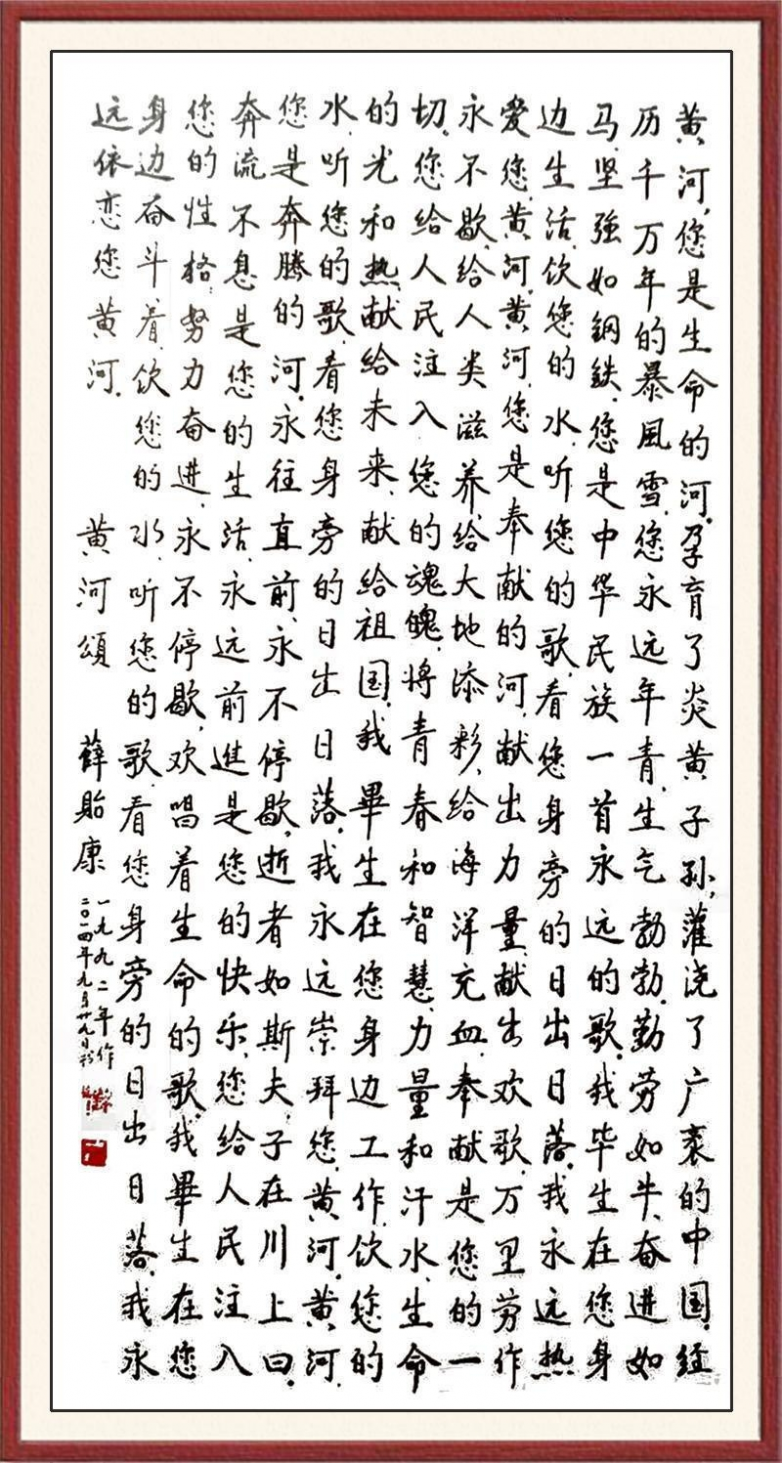 黄河，您是生命的河，孕育了炎黄子孙，灌浇了广袤的中国，经
历千万年的暴風雪，您永远年青，生气勃勃，勤劳如牛，奋进如
马，坚強如鋼鉄，您是中华民族一首永远的歌，我毕生在您身
边生活，饮您的水，听您的歌，看您身旁的日出日落，我永远热
爱您，黄河，黄河，您是奉献的河，献出力量，献出欢歌，万里劳作
永不歇，给人类滋养，给大地添彩，给海洋充血，奉献是您的一
切，您给人民注入您的魂魄，将青春和智慧、力量和汗水、生命
的光和热，献给未来，献给祖国，我畢生在您身边工作，饮您的
水，听您的歌，看您身旁的日出日落，我永远崇拜您，黄河，黄河，
您是奔腾的河，永往直前，永不停歇，逝者如斯夫，子在川上曰，
奔流不息是您的生活，永远前進是您的快乐，您给人民注入
您的性格，努力奋進，永不停歇，欢唱着生命的歌，我畢生在您
身边奋斗着，饮您的水，听您的歌，看您身旁的日出日落，我永
远依恋您，黄河。
黄河頌 薛貽康 一九九二年作
二〇一四年九月廿九日抄